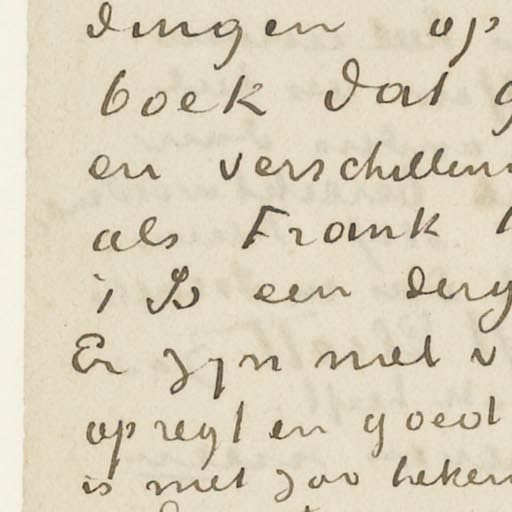 dingen op
boek dat
en verschillen
als Frank
't Is een derg
Er zijn niet v
opregt en goed
is niet zoo teken